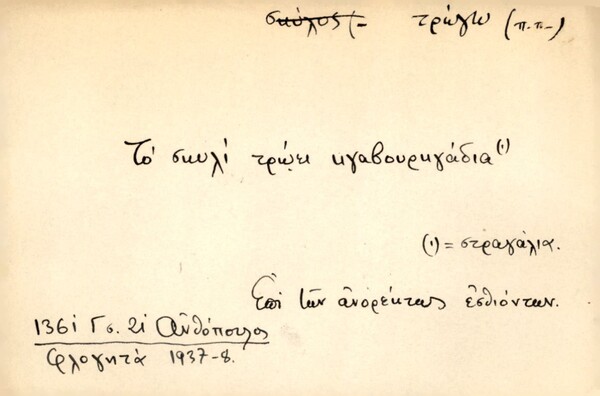 σκύλος (- τρώγω (π.π.-)
Τὸ σκυλὶ τρῴει κγαβουρκγάδια(1)
(1) = στραγάλια.
Ἐπὶ τῶν ἀνορέκτως ἐσθιόντων.
1361 Γσ. 21 Ἀνθόπουλος
Φλογητά 1937-8.